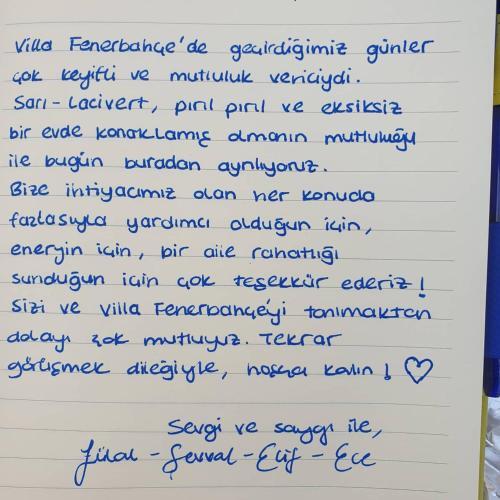 Villa Fenerbahçe'de geçirdiğimiz günler
çok keyifli ve mutluluk vericiydi.
Sarı-Lacivert, pırıl pırıl ve eksiksiz
bir evde konaklamış olmanın mutluluğu
ile bugün buradan ayrılıyoruz.
Bize ihtiyacımız olan her konuda
fazlasıyla yardımcı olduğun için,
enerjin için, bir aile rahatlığı
sunduğun için çok teşekkür ederiz!
Sizi ve Villa Fenerbahçe'yi tanımaktan
dolayı çok mutluyuz. Tekrar
görüşmek dileğiyle, hoşça kalın! ♡
Sevgi ve saygı ile,
Şevval - Elif - Ece